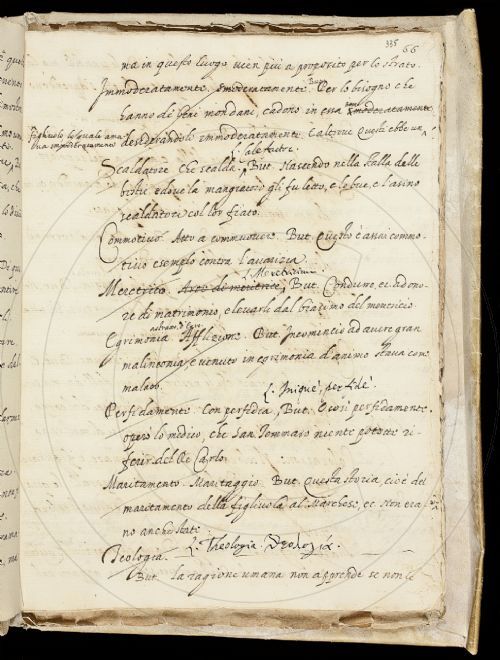 335
66
ma in questo luogo vien più a proposito per lo strato.
Immoderatamente. Smoderatamente. But. Per lo bisogno che
hanno di beni mondani, cadono in essa
desiderandoli immoderatamente. Altrove Questi ebbe un
figliuolo lo quale ama
va immoderatamente
L. calefactor.
Scaldatore Che scalda. But. Nascendo nella stalla delle
bestie e dove la mangiatoro gli fu letto, e lo bue, e l'asino
scaldatori col lor fiato.
Commotivo Atto a commuovere. But. Questo è assai commo-
tivo esemplo contra l'avarizia.
L. Meretricium
Meretricio. Arte di meretrice, But. Conduro, ec. ad ono-
re di matrimonio, e levarli dal biasimo del meretricio
Egrimonia Afflizione. But. Incominciò ad avere gran
malinconia e venuto in egrimonia d'animo stava com
malato.
L. Iniquè, perfidè.
Perfidamente. Con perfidia, But. E così perfidamente
operò lo medico, che San Tommaso niente potesse ri-
ferir del Re Carlo.
Maritamento. Maritaggio. But. Questa storia, cioè del
maritamento della figliuola al Marchese, ec. Non era-
no anche state.
Teologia. L. Theologia. Θεολογία.
But. La ragione umana non apprende se non le